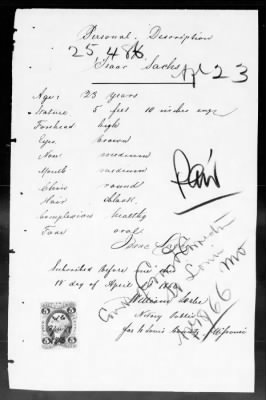 Personal Description
25486
Isaac Sachs
Apl 23
Age: 23 years
Stature 5 feet 10 inches
Forehead high
Eyes brown
Nose medium
Mouth medium
Chin round
Hair black
Complexion healthy
Face oval
Paid
Isaac Sachs
Subscribed before me this
18 day of April
William
Notary Public
for St Louis County, Missouri
St Louis
Mo